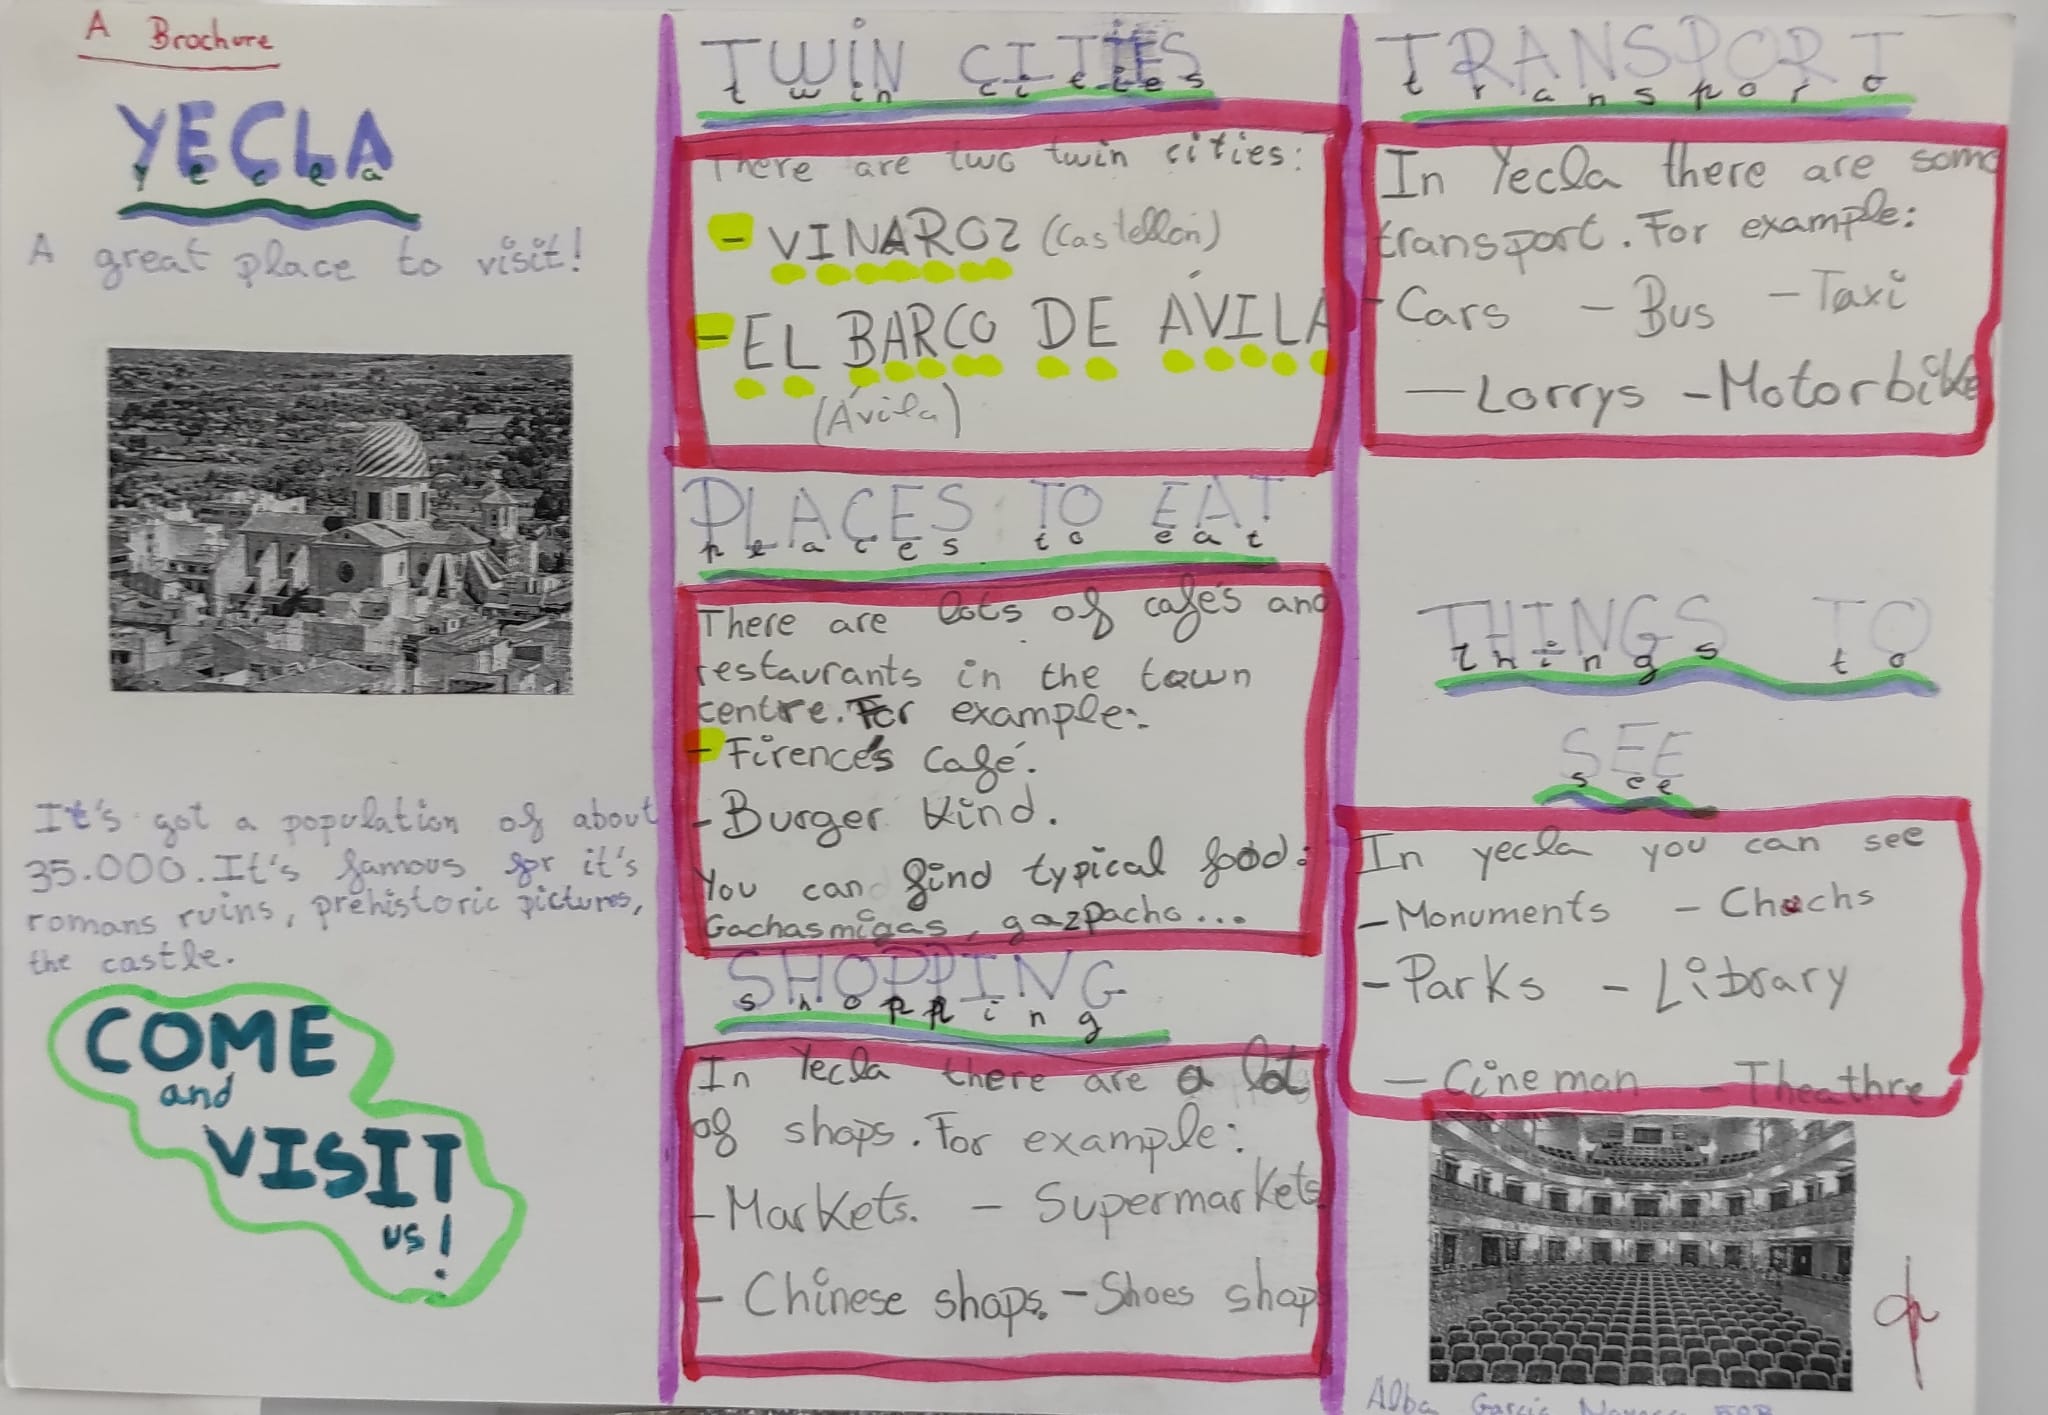 A Brochure
YECLA
yecla
A great place to visit!
It's got a population of about
35.000. It's famous for it's
romans ruins, prehistoric pictures,
the castle.
COME
and
VISIT
us!
TWIN CITIES
twin cities
There are two twin cities:
- VINAROZ (Castellón)
- EL BARCO DE ÁVILA
(Ávila)
PLACES TO EAT
places to eat
There are lots of cafés and
restaurants in the town
centre. For example:
- Firence's café.
- Burger Kind.
You can find typical food:
Gachasmigas, gazpacho...
SHOPPING
shopping
In Yecla there are a lot
of shops. For example:
- Markets. - Supermarkets
- Chinese shops. - Shoes shop
TRANSPORT
transport
In Yecla there are some
transport. For example:
- Cars - Bus - Taxi
- Lorrys - Motorbike
THINGS TO
things to
SEE
see
In yecla you can see
- Monuments - Chuchs
- Parks - Library
- Cineman - Theathre
Alba García